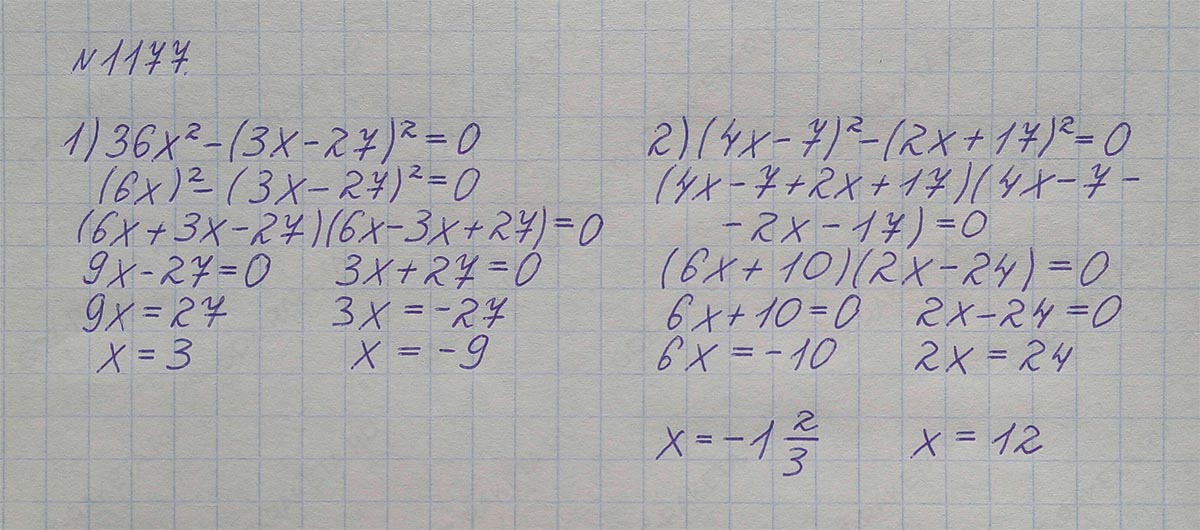 №1177.
1) 36x² - (3x - 27)² = 0
(6x)² - (3x - 27)² = 0
(6x + 3x - 27)(6x - 3x + 27) = 0
9x - 27 = 0 3x + 27 = 0
9x = 27 3x = -27
x = 3 x = -9
2) (4x - 7)² - (2x + 17)² = 0
(4x - 7 + 2x + 17)(4x - 7 -
- 2x - 17) = 0
(6x + 10)(2x - 24) = 0
6x + 10 = 0 2x - 24 = 0
6x = -10 2x = 24
x = -1 2/3 x = 12